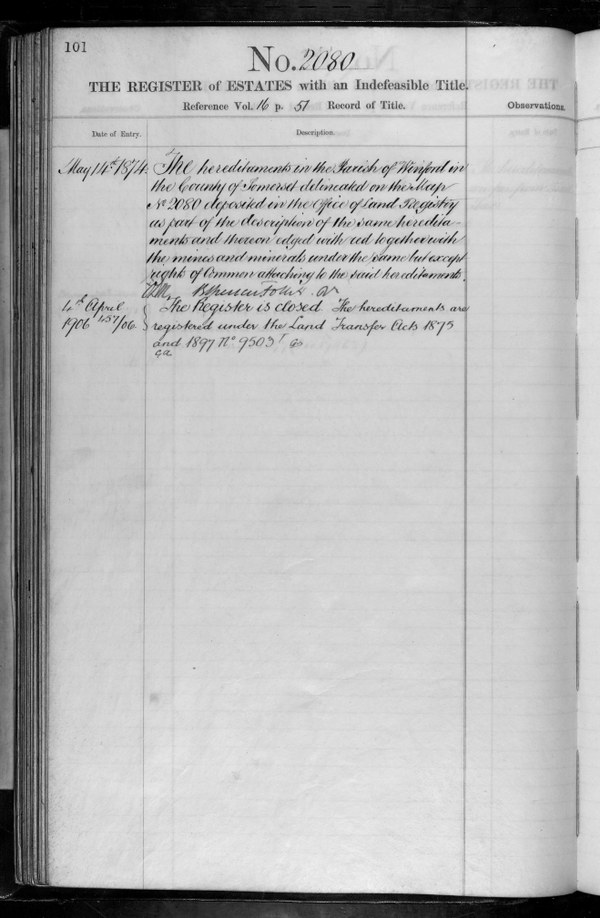 101
No. 2080
THE REGISTER of ESTATES with an Indefeasible Title.
Reference Vol. 16 p. 51 Record of Title.
Observations.
Date of Entry.
Description.
May 14th 1874.
The hereditaments in the Parish of Winford in
the County of Somerset delineated on the Map
No 2080 deposited in the Office of Land Registry
as part of the description of the same heredita-
ments and thereon edged with red together with
the mines and minerals under the same but except
rights of Common attaching to the said hereditaments.
4th April
1906 437/06
The Register is closed The hereditaments are
registered under the Land Transfer Acts 1875
and 1897 No 9503